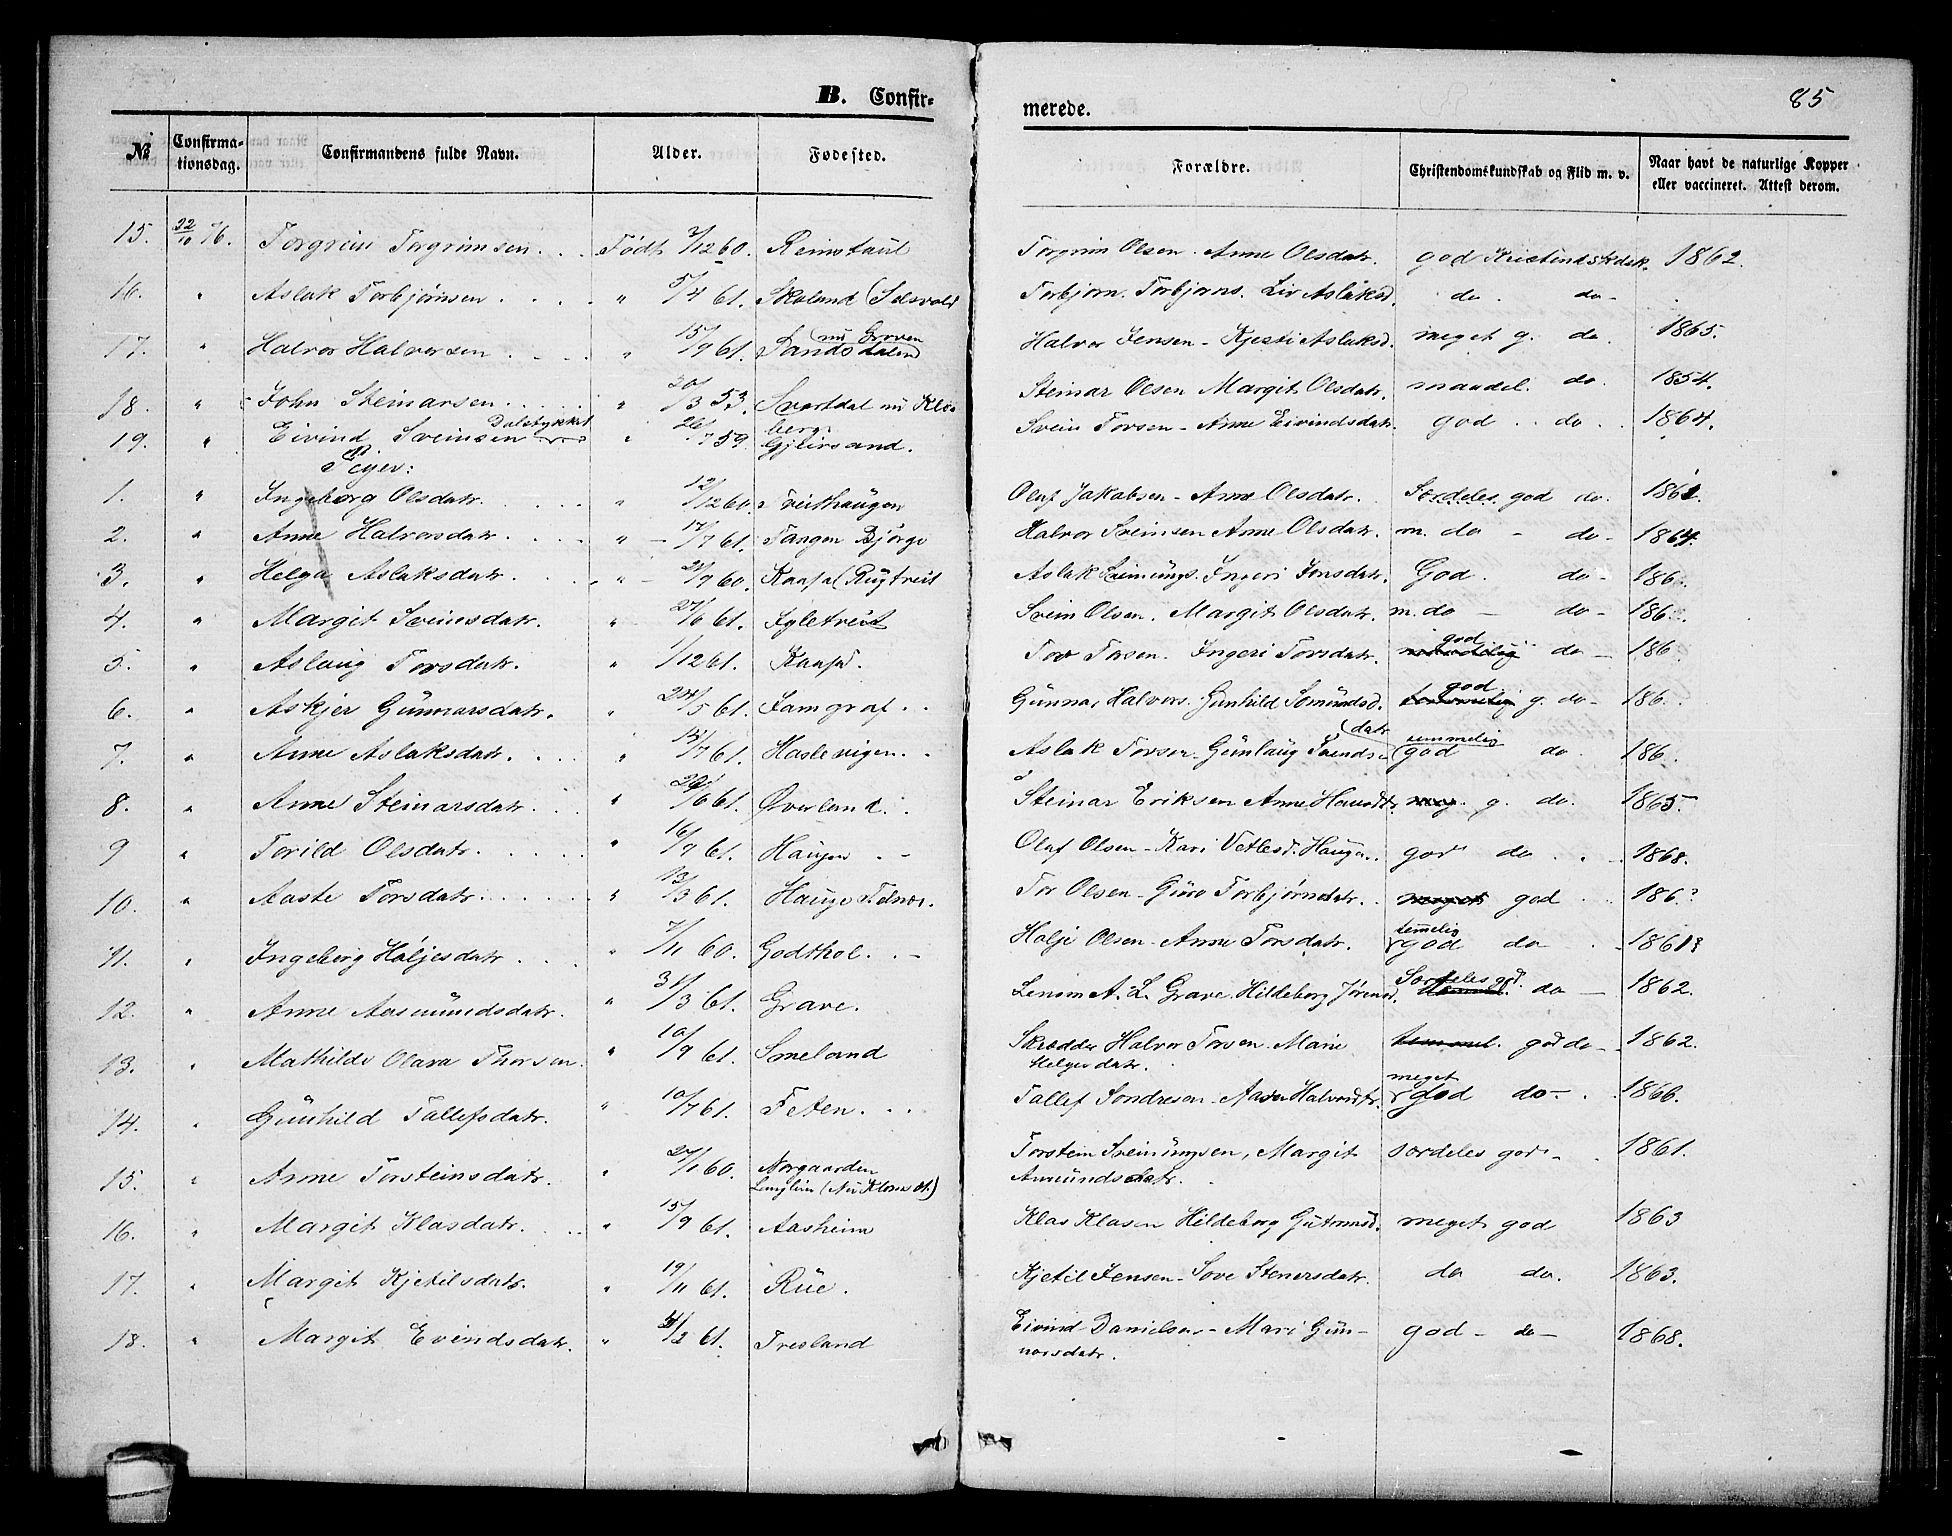 B. Confir-
merede.
85
№
Confirma-
tionsdag.
Confirmandens fulde Navn.
Alder.
Fødested.
Forældre.
Christendomskundskab og Flid m. v.
Naar havt de naturlige Kopper
eller vaccineret. Attest derom.
15. 22/10 76. Torgrim Torgrimsen. Født 7/12 60. Reinstaul Torgrim Olsen. Anne Olsdatr. god Kristendskdsk. 1862.
16. " Aslak Torbjørnsen " 5/4 61. Skaland (Selsvold Torbjørn Torbjørns. Liv Aslaksd. do. do-
nu Groven
17. " Halvor Halvorsen " 15/9 61. Sandsdalen Halvor Jensen - Kjersti Aslaksd. meget g. do 1865.
18. " John Steinarsen " 20/3 53. Svartdal nu Kleo Steinar Olsen Margit Olsdatr. maadel. do. 1854.
Dalstykket berg.
19. " Eivind Sveinsen " 26/7 59. Gjeirsand. Svein Torsen - Anne Eivindsdatr. god do 1864.
Piger:
1. " Ingeborg Olsdatr. " 12/12 60. Treithaugen Oluf Jakobsen - Anne Olsdatr. Særdeles god do. 1862.
2. " Anne Halvorsdatr. " 17/7 61. Tangen Bjørge Halvor Sveinsen Anne Olsdatr. m. do - do- 1864.
3. " Helga Aslaksdatr. " 21/9 60. Kaasa (Rugtveit Aslak Sveinungs. Ingeri Jonsdatr. God. do- 186
4. " Margit Sveinsdatr. " 27/6 61. Fyletveit Svein Olsen. Margit Olsdatr. m. do - do- 186
god
5. " Aslaug Torsdatr. " 1/12 61. Kaasa. Tov Torsen. Ingeri Torsdatr. do - 186
god
6. " Askjer Gunnarsdatr. " 24/5 61. Jamgraf Gunnar Halvors. Gunhild Somundsd. g. do- 186
datr temmelig
7. " Anne Aslaksdatr. " 14/7 61. Haslevigen Aslak Torsen. Gunlaug Svends god do 186
8. " Anne Steinarsdatr. " 29/6 61. Øverland. Steinar Eriksen Anne g. do. 1865.
9 " Torild Olsdatr. " 16/9 61. Haugen Olaf Olsen - Kari Vetlesd. Haugen. god do 1868.
10. " Aaste Torsdatr. " 13/3 61. Hauge Tor Olsen - Guro Torbjørnsdatr. god 186?
temelig
11. " Ingeborg Høljesdatr. " 7/11 60. Godthol. Holje Olsen - Anne Torsdatr. god do 1861?
Særdeles gd.
12. " Anne Aasmundsdatr. " 31/3 61. Grave. Lensm A. L. Grave. Hildeborg Jørensd. do - 1862.
13. " Mathilde Olava Thorsen. " 10/9 61. Smeland Skrædder Halvor Torsen. Marie god do- 1862.
Helgesdatr. meget
14. " Gunhild Tallefsdatr. " 10/7 61. Feten. Tallef Sondresen - Aase Halvorsdtr. god do-. 1866.
15. " Anne Torsteinsdatr. " 27/1 60. Norgaarden Torstein Sveinungsen, Margit særdeles god - 1861.
Amundsdatr.
16. " Margit Klasdatr. " 15/9 61. Aasheim Klas Klasen Hildeborg Gutormsd. meget god 1863
17. " Margit Kjetilsdatr. " 19/11 61. Rue. Kjetil Jensen - Sove Stenersdatr. do do. 1863.
18. " Margit Evindsdatr. " /2 61. Tresland Eivind Danielsen - Mari Gun- god - do - 1868.
norsdatr.